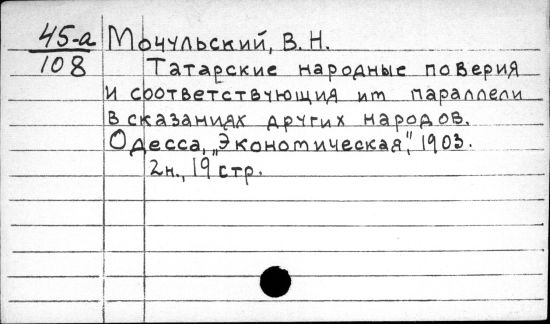 45-а Мочульский, В. Н.
108 Татарские народные поверия
и соответствующия им параллели
в сказаниях других народов.
Одесса, „Экономическая", 1903.
2н., 19 стр.